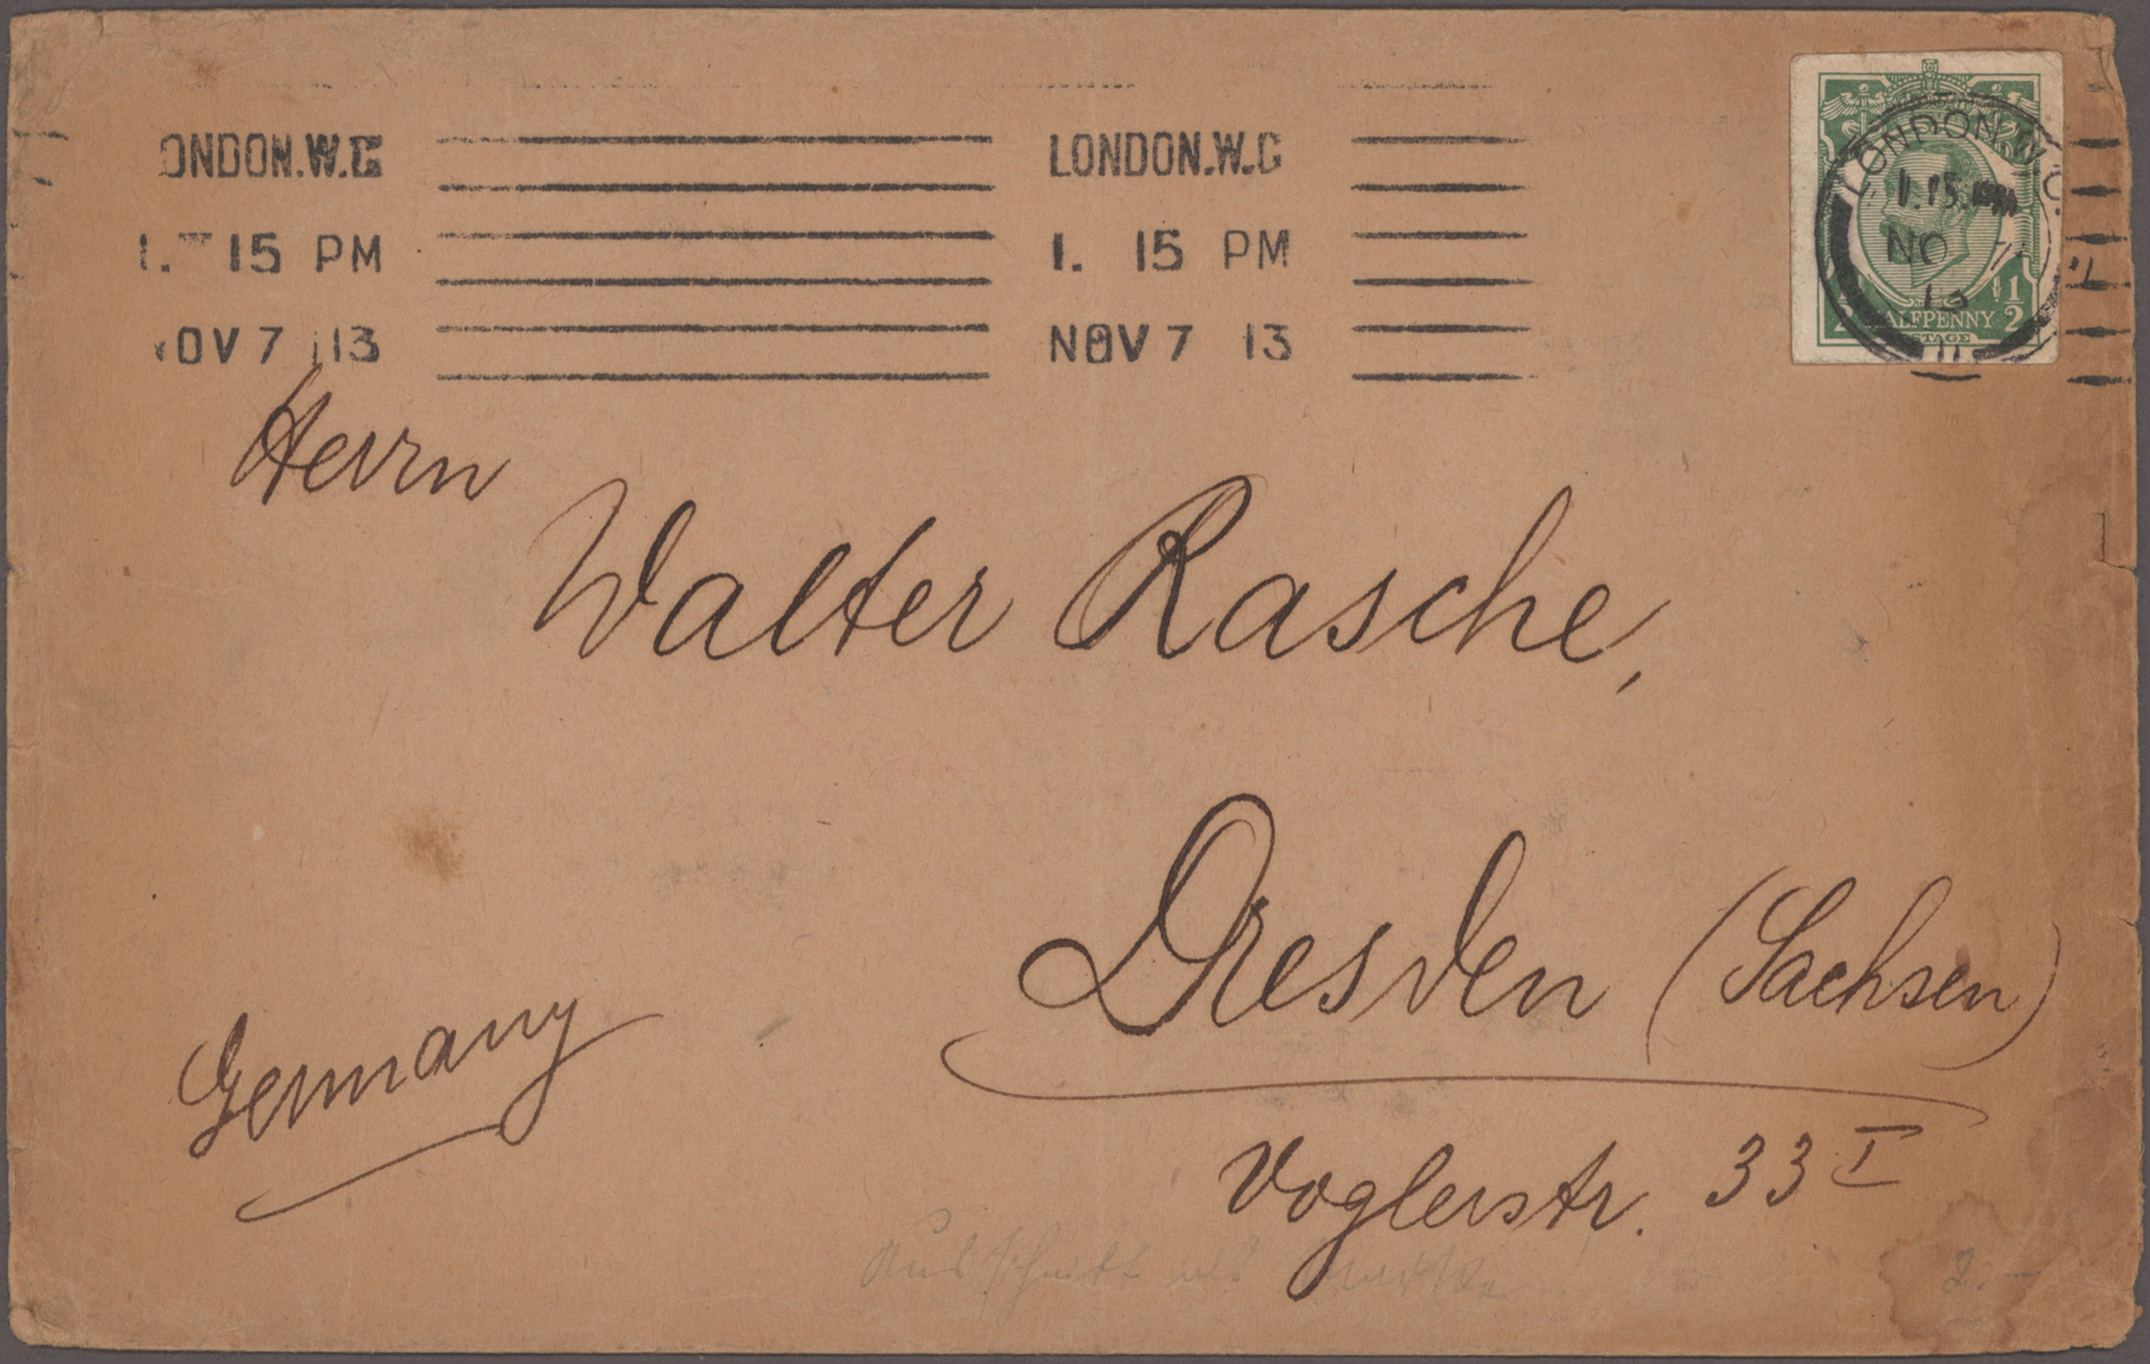 ONDON.W.C
LONDON.W.C
1. 15 PM
1. 15 PM
NOV 7 13
NOV 7 13
LONDON.W.C.
1.15.PM
NO 7
13
11
1/2
HALFPENNY
1/2
POSTAGE
Herrn
Walter Rasche,
Dresden (Sachsen)
Germany
Voglerstr. 33 I
Ausschnitt als
2.-